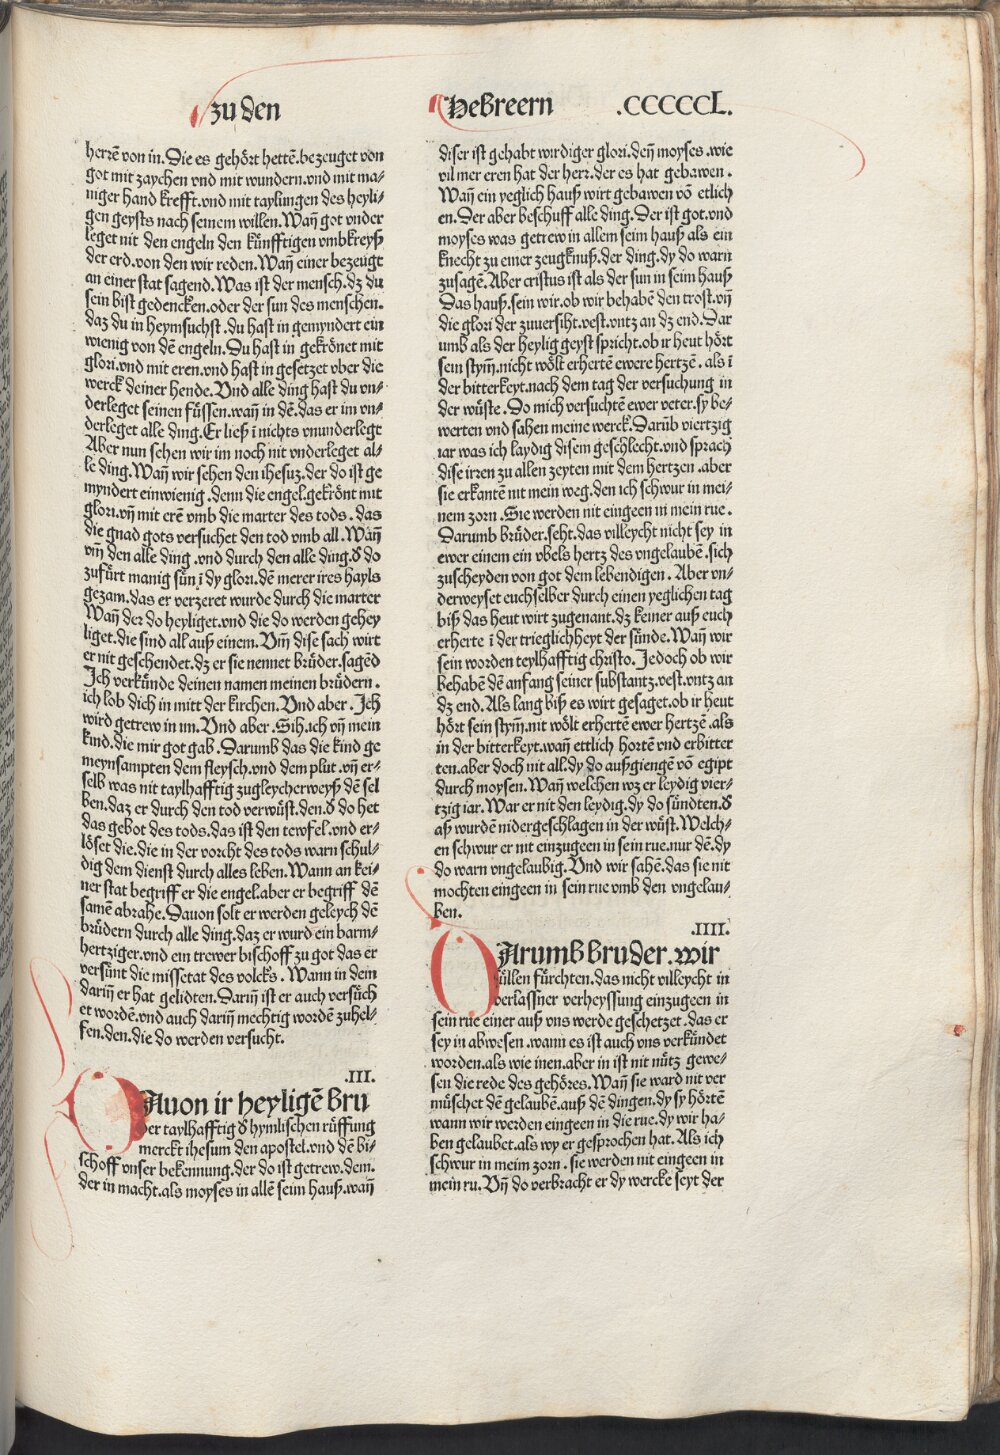 zu den
Hebreern .CCCCCL.
herrẽ von in. Die es gehört hettẽ. bezeuget von
got mit zaychen vnd mit wundern. vnd mit ma-
niger hand krefft. vnd mit taylungen des heyli-
gen geysts nach seinem willen. Wañ got vnder
leget nit den engeln den künfftigen vmbkreyß
der erd. von den wir reden. Wañ einer bezeugt
an einer stat sagend. Was ist der mensch. dz du
sein bist gedencken. oder der sun des menschen.
daz du in heymsuchst. du hast in gemyndert ein
wienig von dẽ engeln. Du hast in gekrönet mit
glori. vnd mit eren. vnd hast in gesetzet vber die
werck deiner hende. Vnd alle ding hast du vn-
derleget seinen füssen. wañ in dẽ. das er im vn-
derleget alle ding. Er ließ ĩ nichts vnunderlegt
Aber nun sehen wir im noch nit vnderleget al-
le ding. Wañ wir sehen den ihesuz. der do ist ge
myndert einwienig. denn die engel. gekrönt mit
glori. vñ mit erẽ vmb die marter des tods. das
die gnad gots versuchet den tod vmb all. Wañ
vm̃ den alle ding. vnd durch den alle ding. d̕ do
zufürt manig sün ĩ dy glori. dẽ merer ires hayls
gezam. das er verzeret wurde durch die marter
Wañ der do heyliget. vnd die do werden gehey
liget. die sind all auß einem. Vm̃ dise sach wirt
er nit geschendet. dz er sie nennet brüder. sagẽd
Ich verkünde deinen namen meinen brüdern.
ich lob dich in mitt der kirchen. Vnd aber. Ich
wird getrew in im. Vnd aber. Sih. ich vñ mein
kind. die mir got gab. Darumb das die kind ge
meynsampten dem fleysch. vnd dem plut. vñ er-
selb was nit taylhafftig zugleycherweyß dẽ sel
ben. daz er durch den tod verwüst. den. d̕ do het
das gebot des tods. das ist den tewfel. vnd er-
löset die. die in der vorcht des tods warn schul-
dig dem dienst durch alles leben. Wann an kei-
ner stat begriff er die engel. aber er begriff dẽ
samẽ abrahe. Dauon solt er werden geleych dẽ
brüdern durch alle ding. daz er wurd ein barm-
hertziger. vnd ein trewer bischoff zu got das er
versünt die missetat des volcks. Wann in dem
dariñ er hat gelidten. Dariñ ist er auch versüch
et wordẽ. vnd auch dariñ mechtig wordẽ zuhel-
fen. den. die do werden versucht.
.III.
DAuon ir heyligẽ bru
der taylhafftig d̕ hymlischen rüffung
merckt ihesum den apostel. vnd dẽ bi-
schoff vnser bekennung. der do ist getrew. dem.
der in macht. als moyses in allẽ seim hauß. wañ
diser ist gehabt wirdiger glori. deñ moyses. wie
vil mer eren hat der herr. der es hat gebawen.
Wañ ein yeglich hauß wirt gebawen võ etlich
en. Der aber beschuff alle ding. Der ist got. vnd
moyses was getrew in allem seim hauß als ein
knecht zu einer zeugknuß. der ding. dy do warn
zusagẽ. Aber cristus ist als der sun in seim hauß
Das hauß. sein wir. ob wir behabẽ den trost. vñ
die glori der zuuersiht. vest. vntz an dz end. Dar
umb als der heylig geyst spricht. ob ir heut hört
sein stym̃. nicht wölt erhertẽ ewere hertzẽ. als ĩ
der bitterkeyt. nach dem tag der versuchung in
der wüste. Do mich versuchtẽ ewer veter. sy be-
werten vnd sahen meine werck. Darüb viertzig
iar was ich laydig disem geschlecht. vnd sprach
dise irren zu allen zeyten mit dem hertzen. aber
sie erkantẽ nit mein weg. den ich schwur in mei-
nem zorn. Sie werden nit eingeen in mein rue.
Darumb brüder. seht. das villeycht nicht sey in
ewer einem ein vbels hertz des vngelaubẽ. sich
zuscheyden von got dem lebendigen. Aber vn-
derweyset euchselber durch einen yeglichen tag
biß das heut wirt zugenant. dz keiner auß euch
erherte ĩ der trieglichheyt der sünde. Wañ wir
sein worden teylhafftig christo. Jedoch ob wir
behabẽ dẽ anfang seiner substantz. vest. vntz an
dz end. Als lang biß es wirt gesaget. ob ir heut
hört sein stym̃. nit wölt erhertẽ ewer hertzẽ. als
in der bitterkeyt. wañ ettlich hortẽ vnd erbitter
ten. aber doch nit all. dy do außgiengẽ võ egipt
durch moysen. Wañ welchen wz er leydig vier-
tzig iar. War er nit den leydig. dy do sündten. d̕
aß wurdẽ nidergeschlagen in der wüst. Welch-
en schwur er nit einzugeen in sein rue. nur dẽ. dy
do warn vngelaubig. Vnd wir sahẽ. das sie nit
mochten eingeen in sein rue vmb den vngelau-
ben.
.IIII.
DArumb bruder. wir
süllen fürchten. das nicht villeycht in
verlassner verheyssung einzugeen in
sein rue einer auß vns werde geschetzet. das er
sey in abwesen. wann es ist auch vns verkündet
worden. als wie inen. aber in ist nit nütz gewe-
sen die rede des gehöres. Wañ sie ward nit ver
müschet dẽ gelaubẽ. auß dẽ dingen. dy sy hörtẽ
wann wir werden eingeen in die rue. dy wir ha-
ben gelaubet. als wy er gesprochen hat. Als ich
schwur in meim zorn. sie werden nit eingeen in
mein ru. Vñ do verbracht er dy wercke seyt der